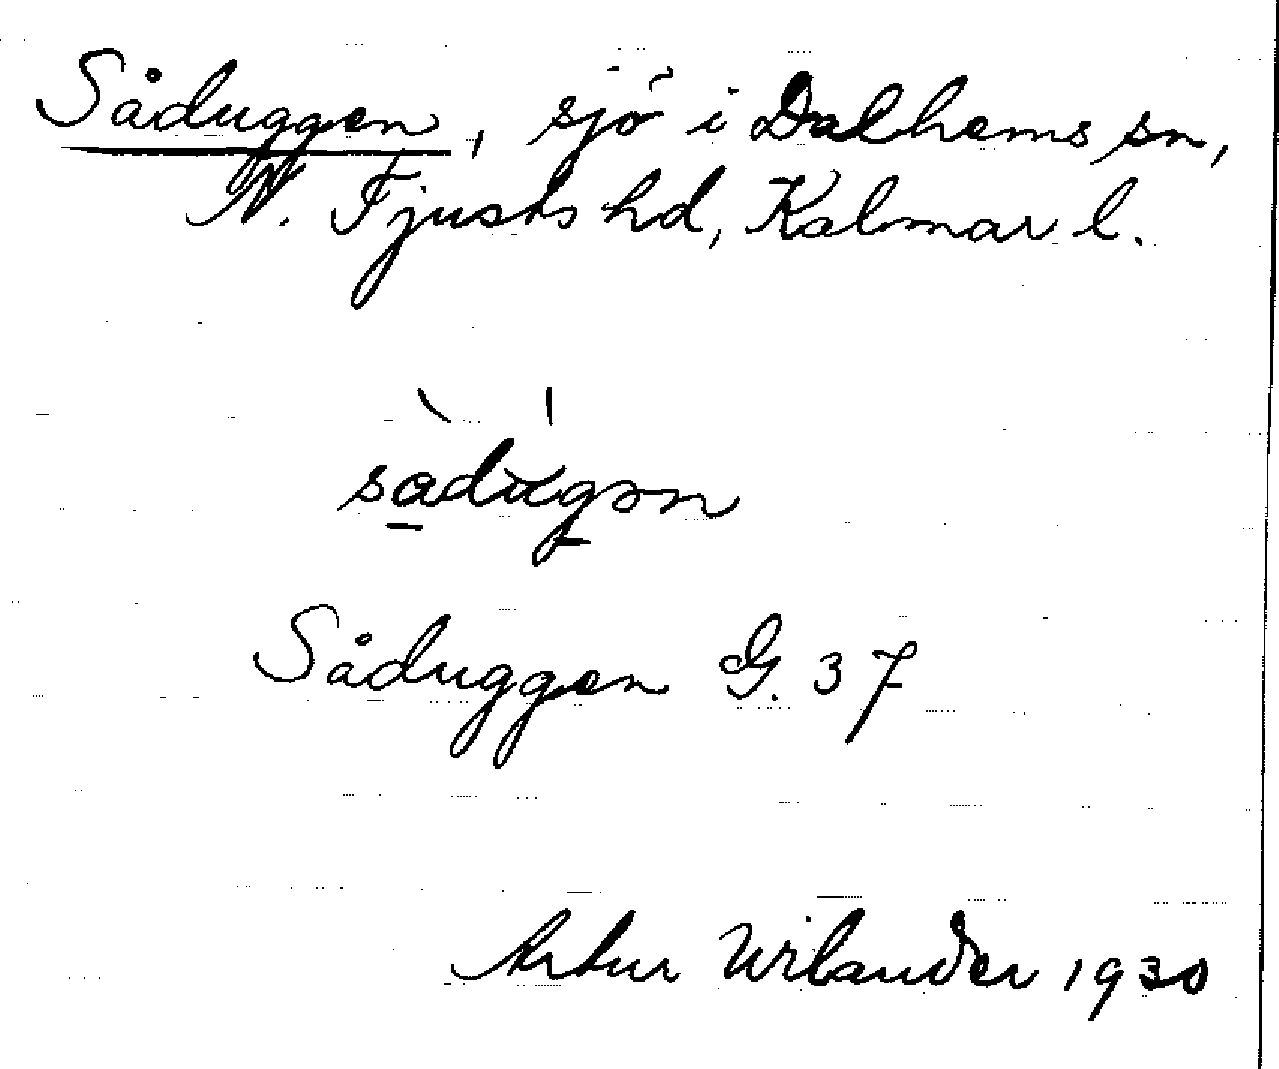 Såduggen, sjö i Dalhems sn,
N. Tjusts hd, Kalmar l.
sàdug̱ən
Såduggen G. 37
Artur Wilander 1930